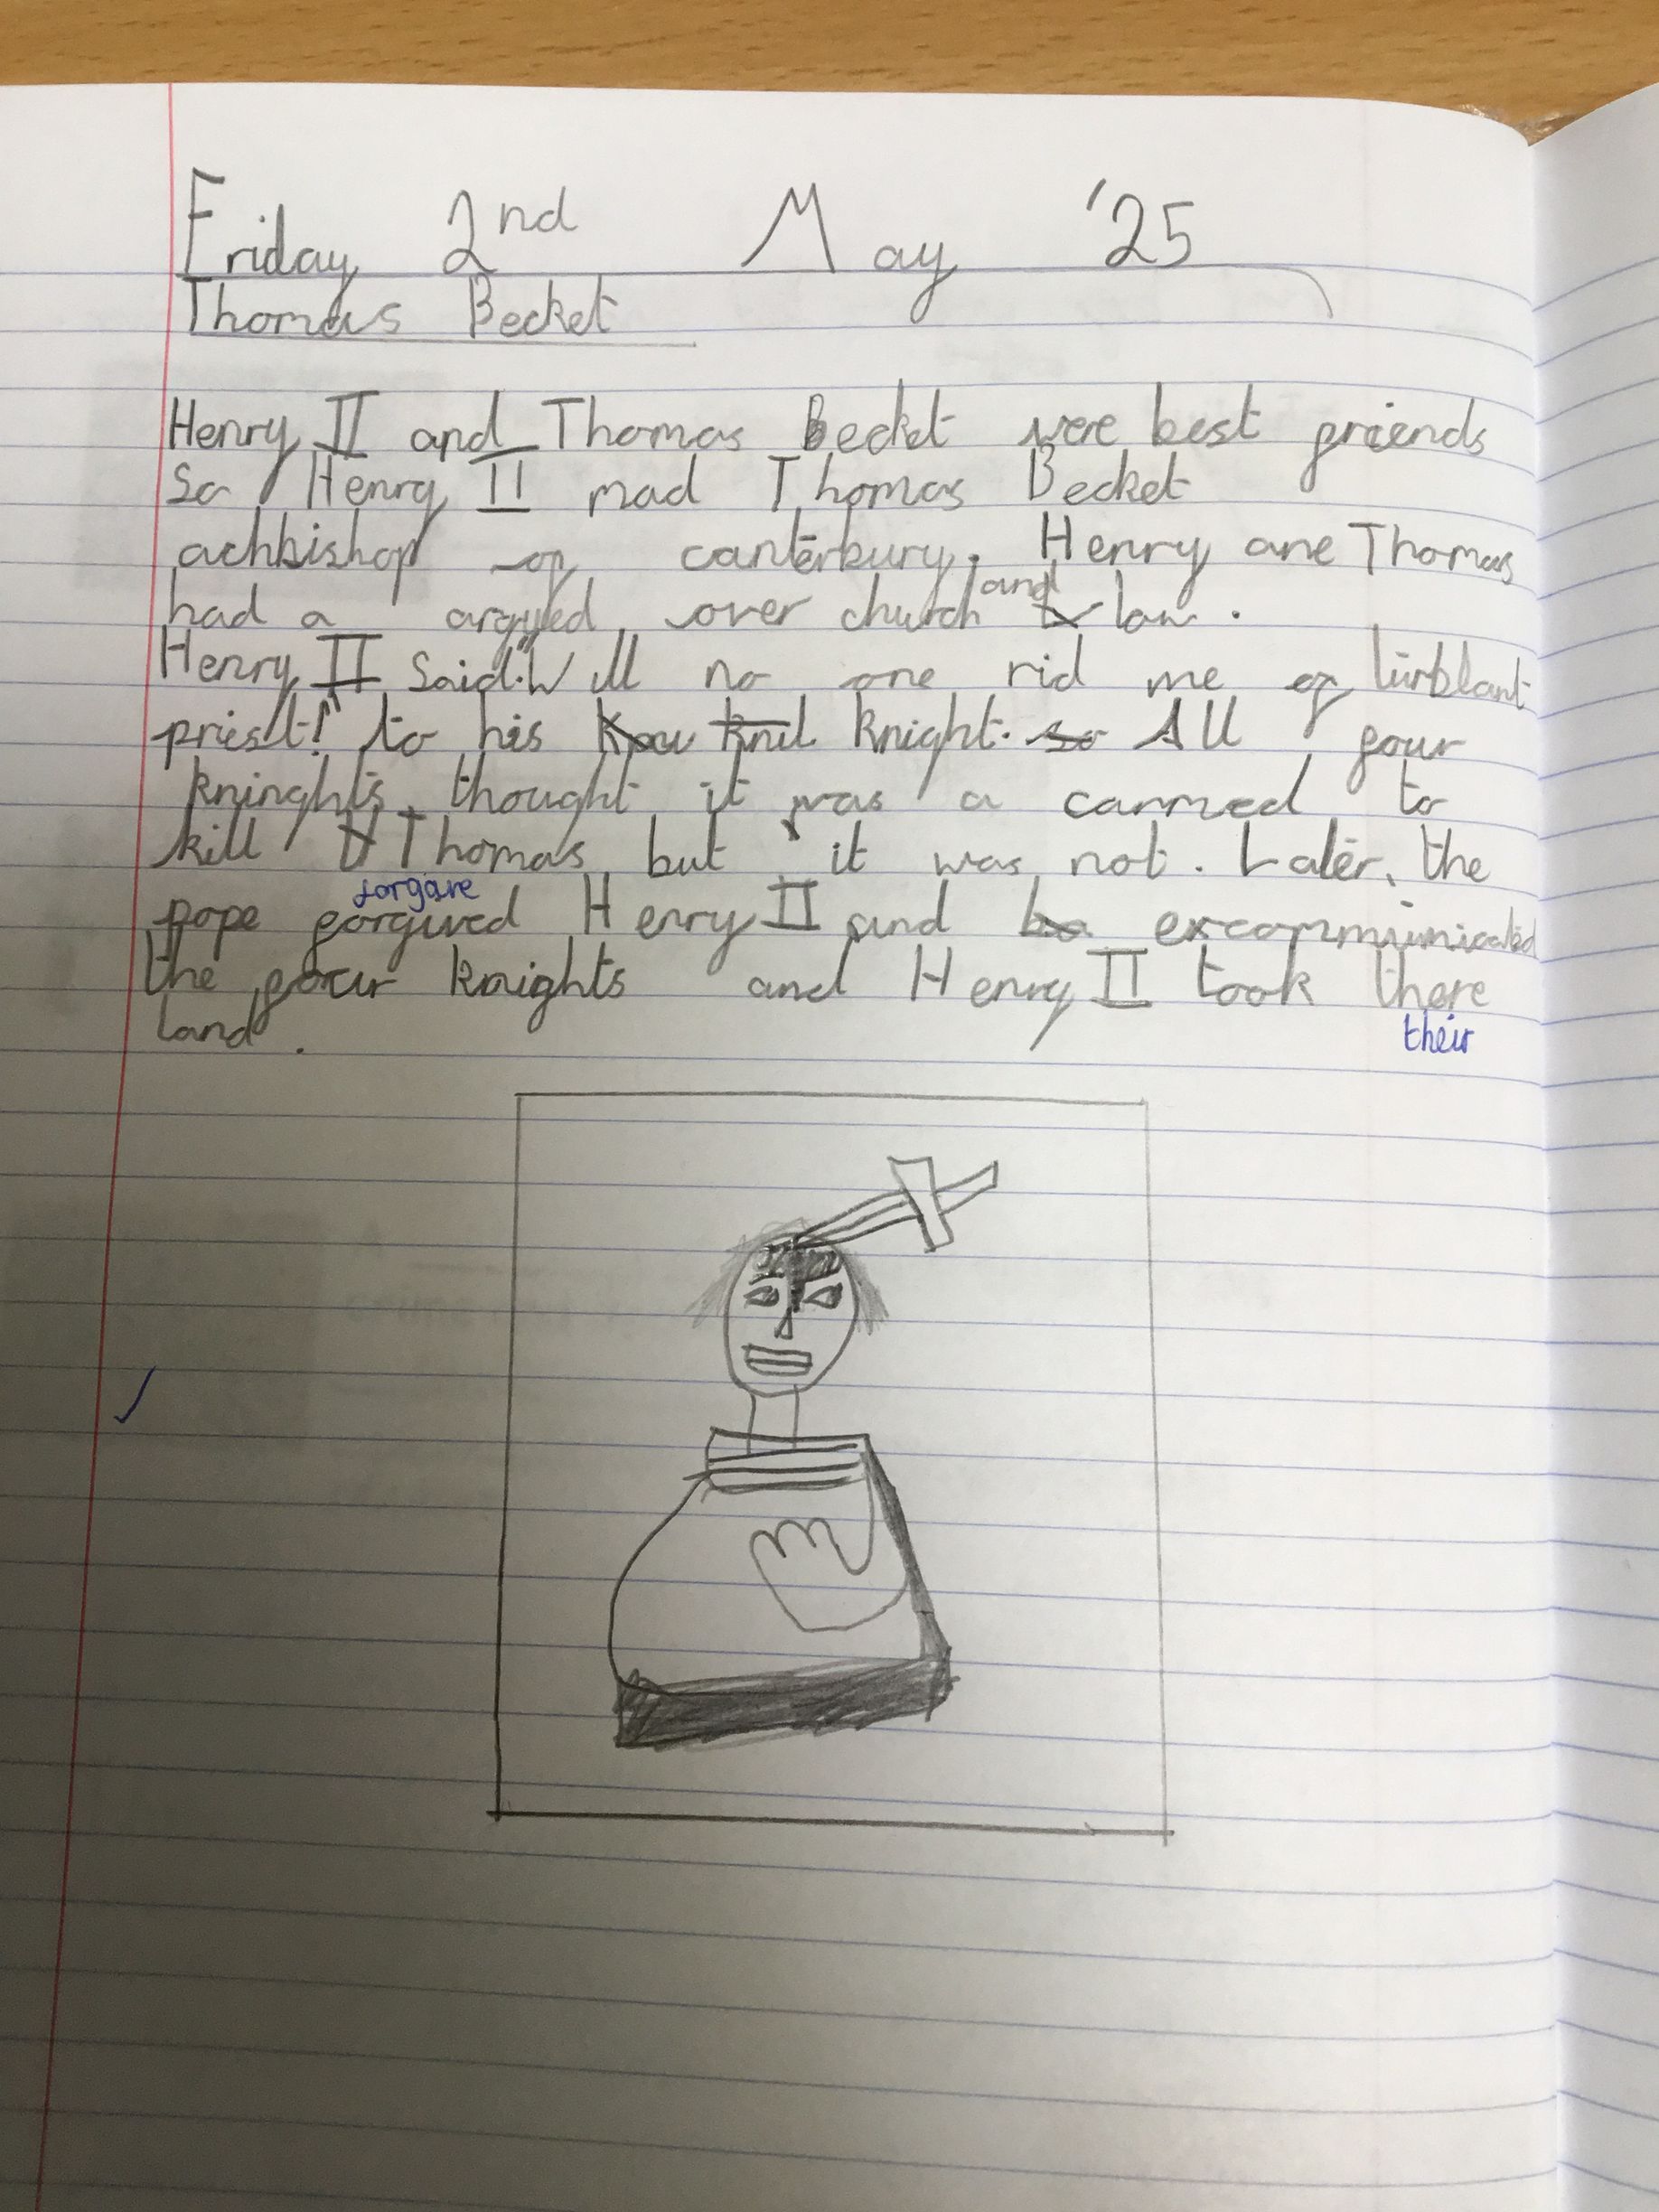 Friday 2nd May '25
Thomas Becket
Henry II and Thomas Becket were best friends
So Henry II mad Thomas Becket
achbishop of canterbury. Henry ane Thomas
had a argyed over church and law.
Henry II Said "Will no one rid me of turblant
priest!" to his knight. so All four
kninghts thought it was a carmed to
kill Thomas but it was not. Later, the
forgave
pope forgived Henry II and excommunicated
the four knights and Henry II took there
their
land.